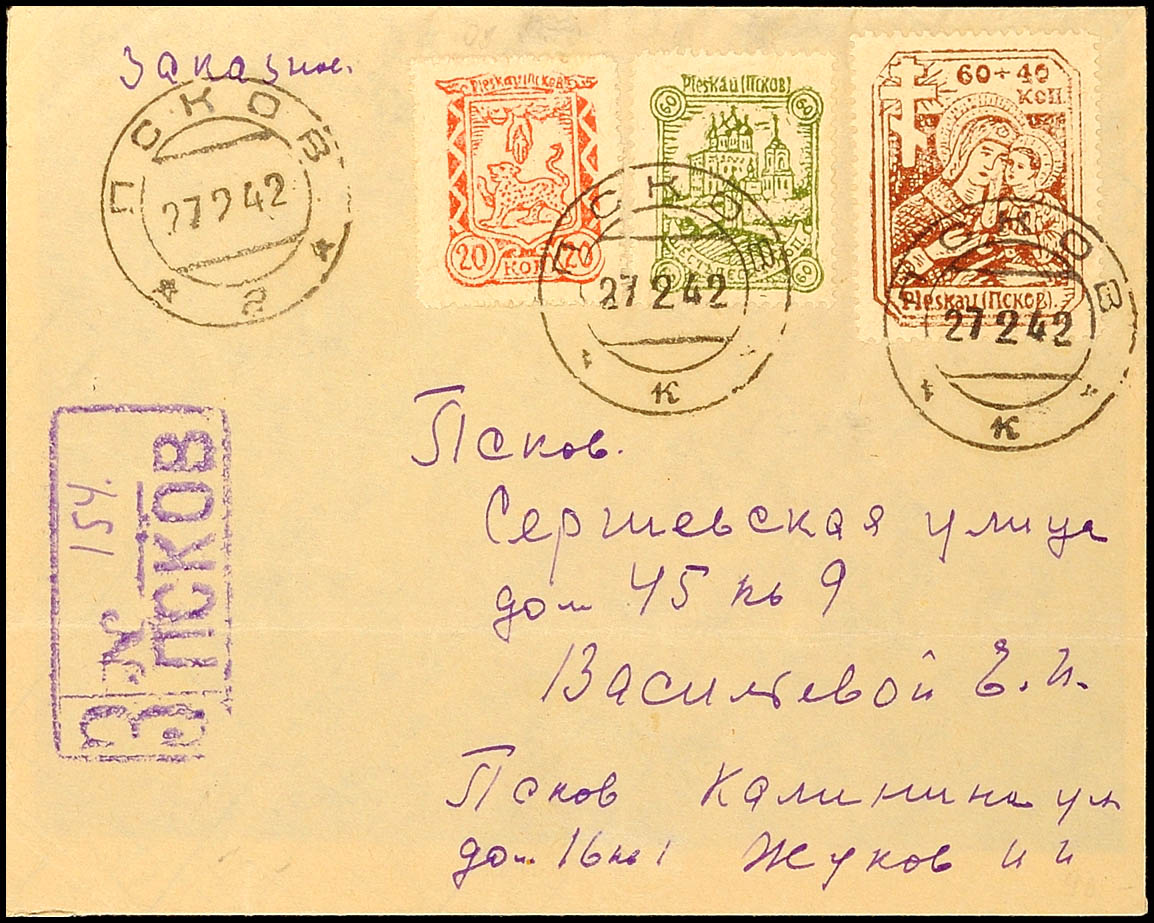 Заказное.
ПСКОВ
27 2 42
а
Pleskau (Псков)
20 КОП 20
Pleskau (ПСКОВ)
60 60
60
60 + 40
КОП.
Pleskau (Псков).
ПСКОВ
27 2 42
к
ПСКОВ
27 2 42
к
З ПСКОВ
№ 154.
Псков.
Сергиевская улица
дом 45 кв 9
Васильевой Е. И.
Псков Калинина ул
дом 16 кв 1 Жуков И И